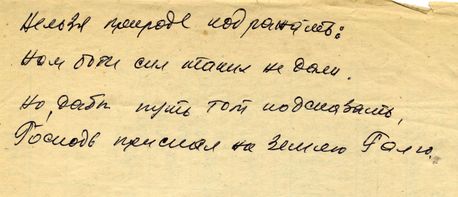 Нельзя природе подражать:
Нам боги сил таких не дали.
Но, дабы путь тот подсказать,
Господь прислал на Землю Галю.